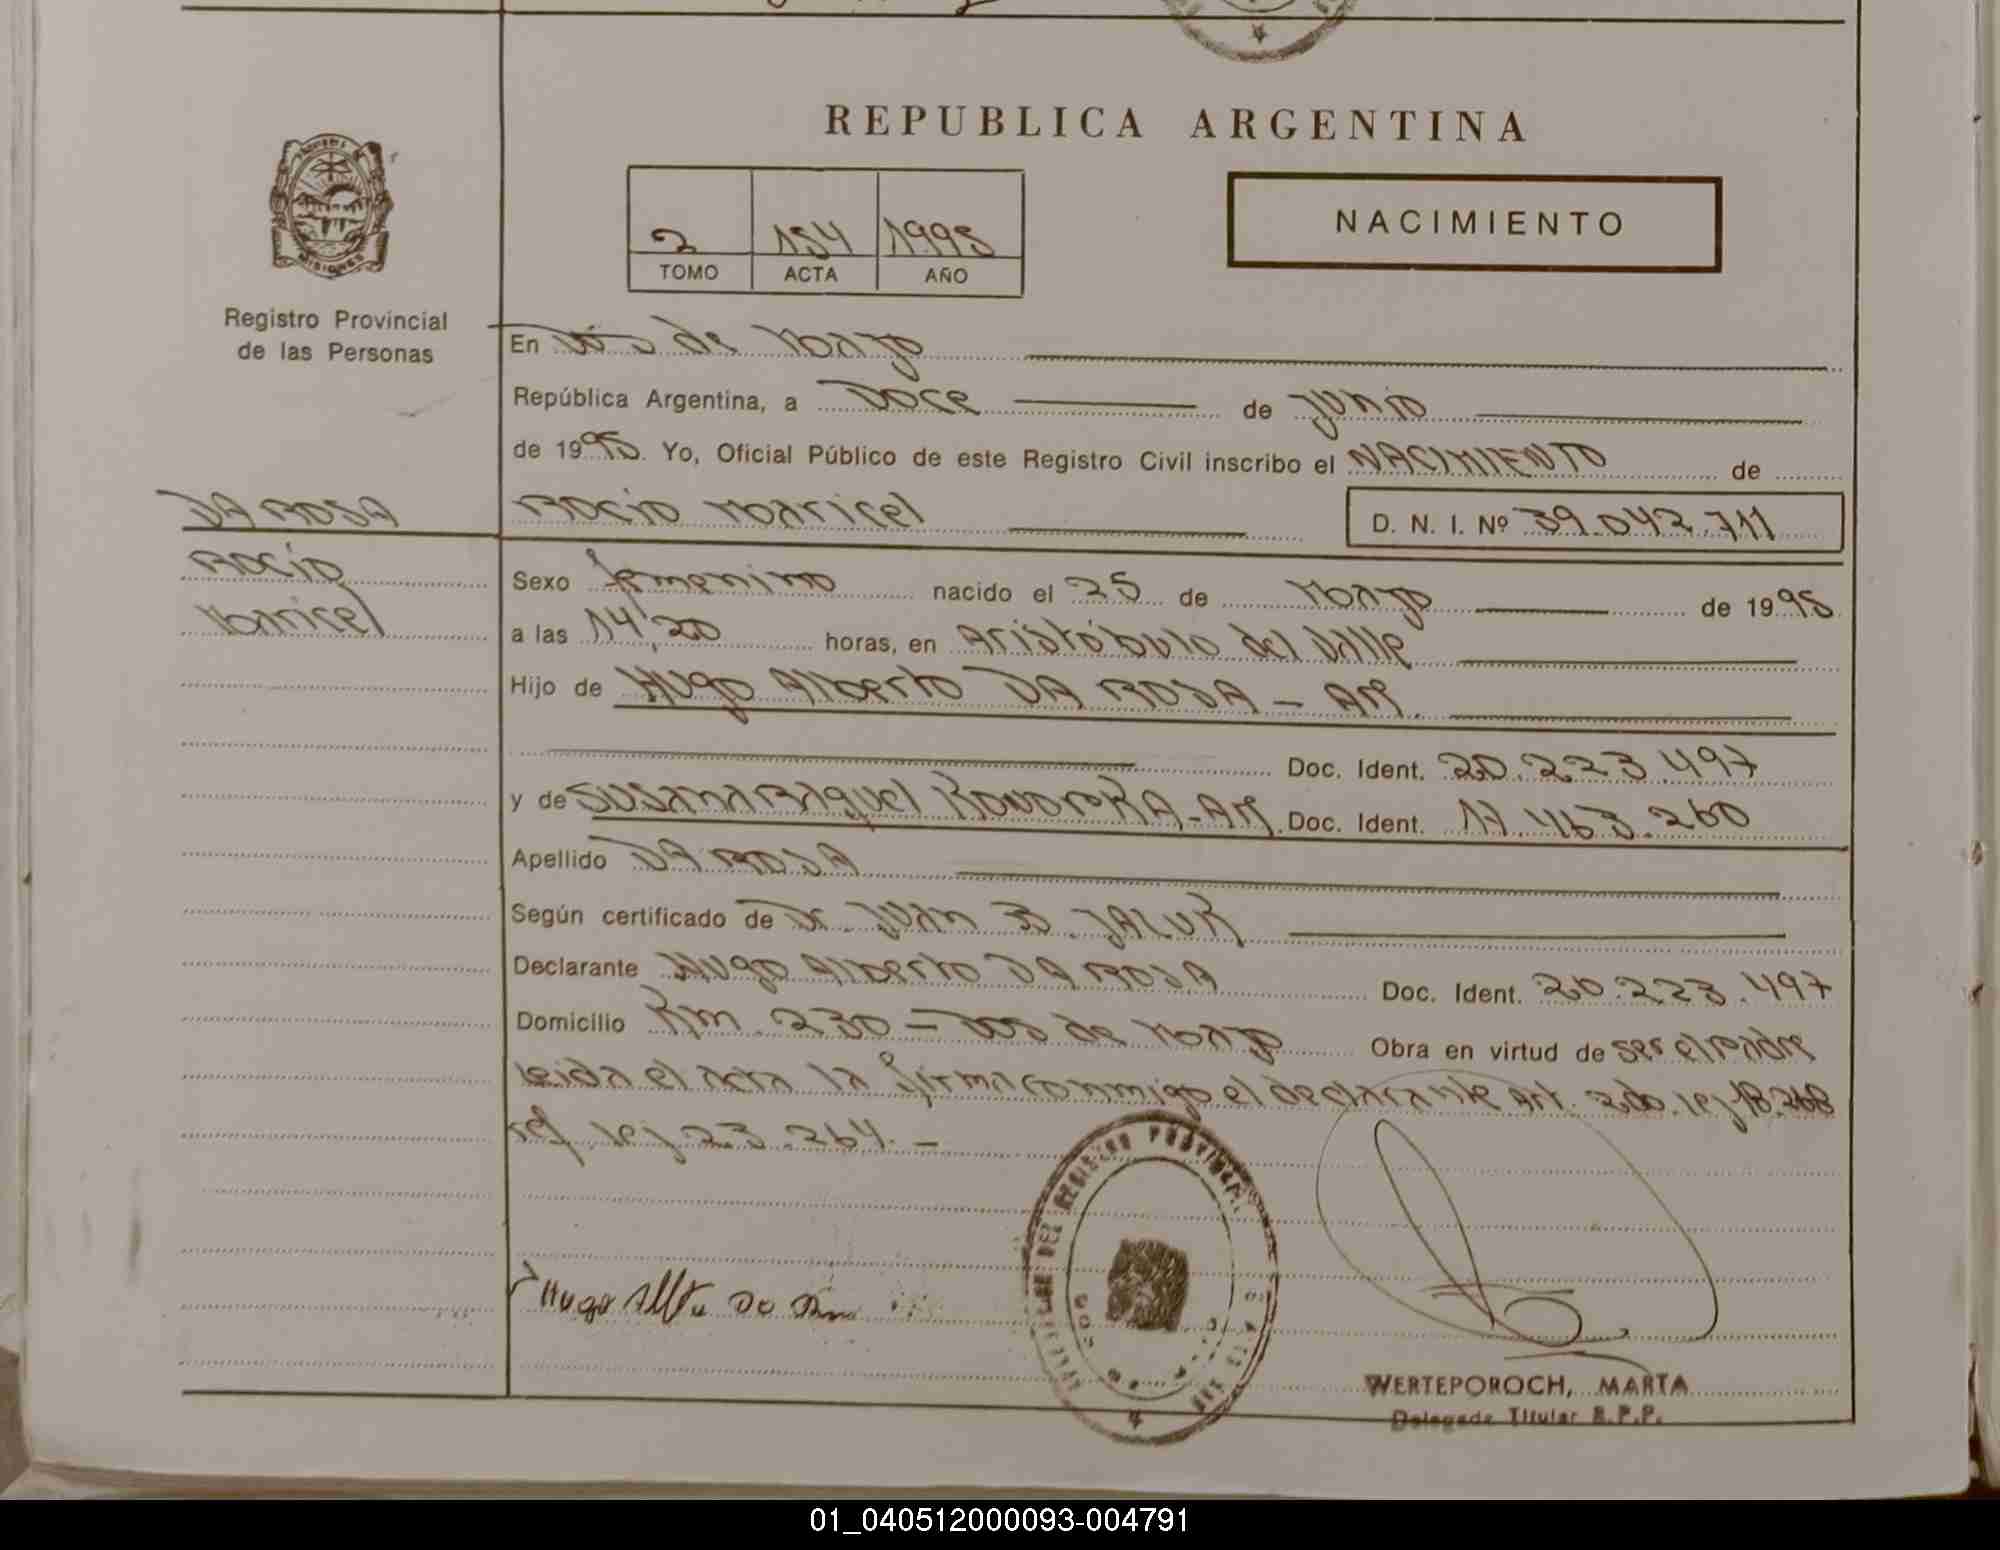 REPUBLICA ARGENTINA
MISIONES
2 154 1995
TOMO ACTA AÑO
NACIMIENTO
Registro Provincial
de las Personas
En Dos de Mayo
República Argentina, a Doce de Junio
de 1995. Yo, Oficial Público de este Registro Civil inscribo el NACIMIENTO de
DA ROSA
Rocío
Maricel
Rocío Maricel D. N. I. Nº 39.042.711
Sexo femenino nacido el 25 de Mayo de 1995
a las 14,20 horas, en Aristóbulo del Valle
Hijo de Hugo Alberto DA ROSA - Arg.
Doc. Ident. 20.223.497
y de Susana Raquel - Arg. Doc. Ident. 17.463.260
Apellido DA ROSA
Según certificado de Dr. Juan B. JALUK
Declarante Hugo Alberto DA ROSA Doc. Ident. 20.223.497
Domicilio Km. 230 - Dos de Mayo Obra en virtud de ser el padre
leida el acta la firma conmigo el declarante Art. 2do. ley 18.248
ref. ley 23.264. -
REGISTRO PROVINCIAL
WERTEPOROCH, MARTA
Delegada Titular R.P.P.
01_040512000093-004791